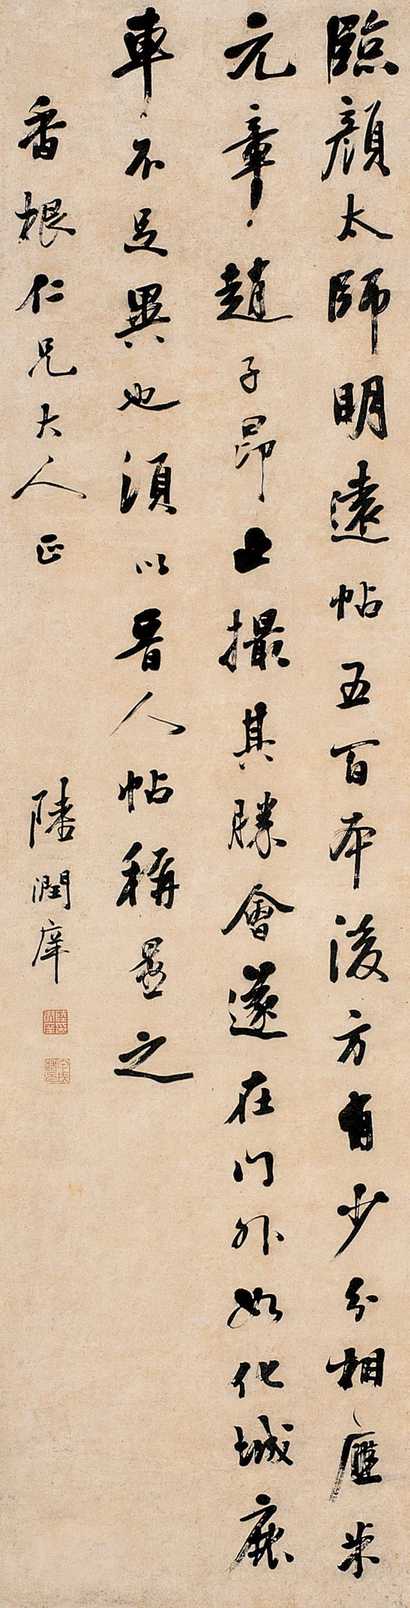 臨顏太師明遠帖五百本後方有少分相應米
元章趙子昂止撮其勝會遂在門外如化城鹿
車不足異也須以晉人帖稱量之
香根仁兄大人正
陸潤庠